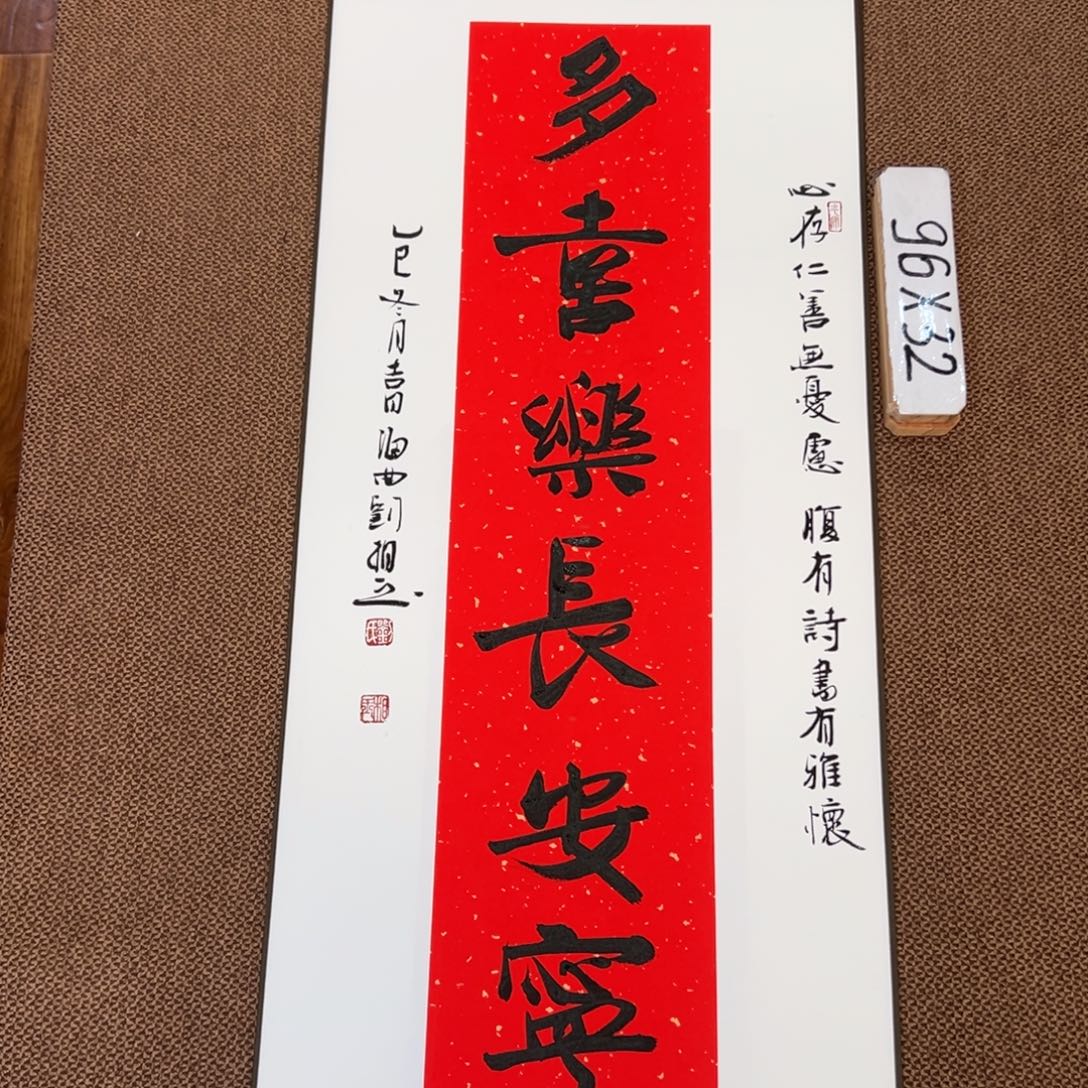 多喜樂長安寧
心存仁善無憂慮 腹有詩書有雅懷
乙巳冬月吉日海西劉相
96X32